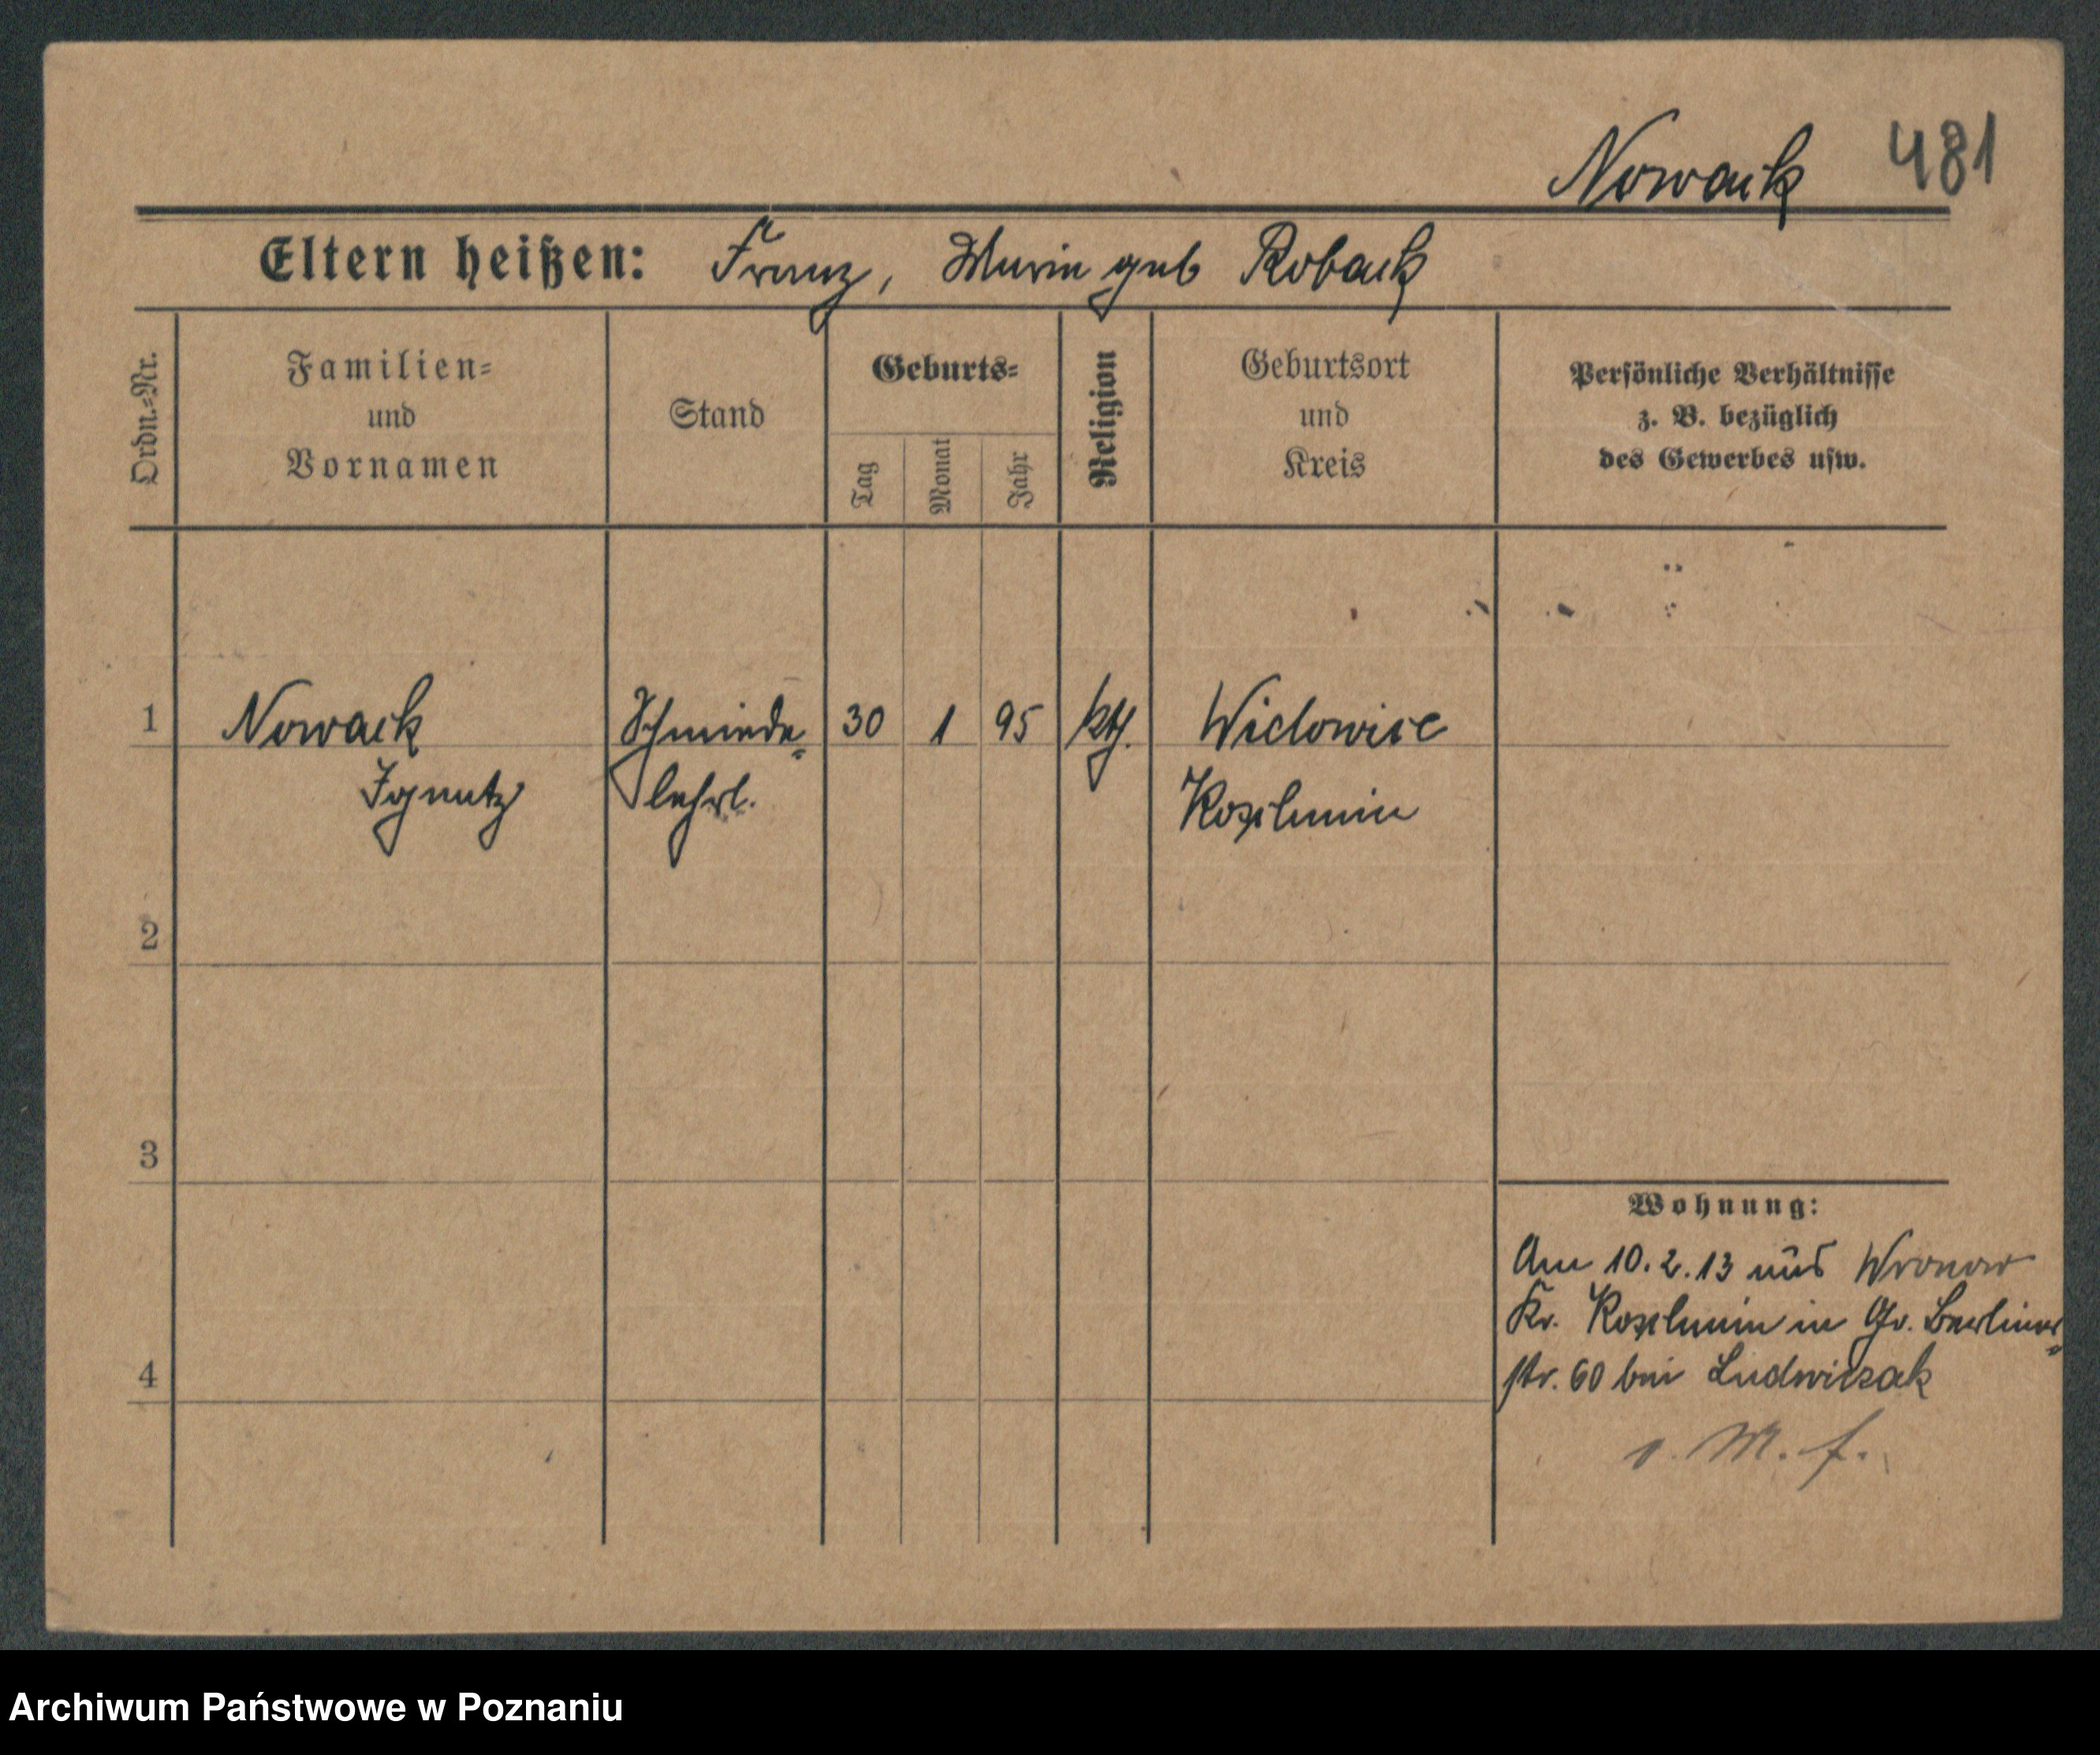 Nowack 481
Eltern heißen: Franz, Marie geb Roback
Ordn.-Nr.
Familien-
und
Vornamen
Stand
Geburts-
Tag
Monat
Jahr
Religion
Geburtsort
und
Kreis
Persönliche Verhältnisse
z. B. bezüglich
des Gewerbes usw.
1 Nowack Schmiede- 30 1 95 kth.
Ignatz lehrl. Koschmin
2
3
Wohnung:
Am 10.2.13 aus Wronow
Kr. Koschmin in Gr. Berliner-
4 str. 60 bei Ludwiczak
Archiwum Państwowe w Poznaniu